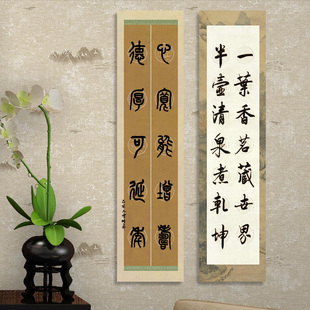 一葉香茗藏世界
半壺清泉煮乾坤
心寬能增壽
德厚可延年